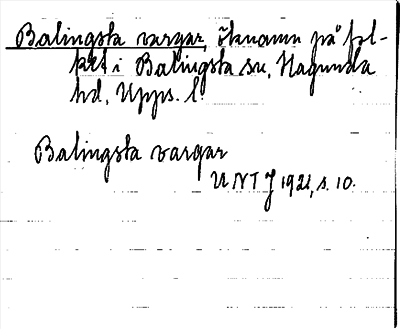 Balingsta vargar, öknamn på fol-
ket i Balingsta sn, Hagunda
hd, Upps. l.
Balingsta vargar
UNT J 1921, s. 10.